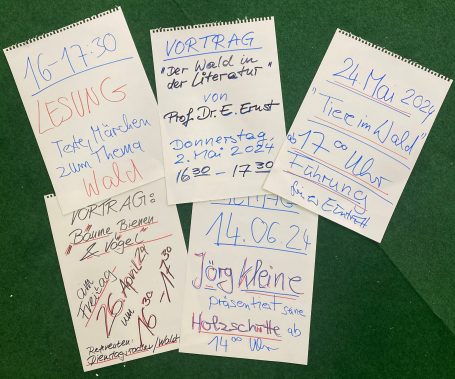 16-17:30
LESUNG
Texte, Märchen
zum Thema
Wald
VORTRAG
"Der Wald in
der Literatur"
von
Prof. Dr. E. Ernst
Donnerstag,
2. Mai 2024
16 30 - 17 30
24 Mai 2024
"Tiere im Wald"
ab 17 00 Uhr
Führung
VORTRAG:
"Bäume Bienen
& Vögel"
am
Freitag
26. April 24
um 16 30 - 17 30
Referenten:
14.06.24
Jörg Kleine
präsentiert seine
Holzschnitte ab
14 00 Uhr